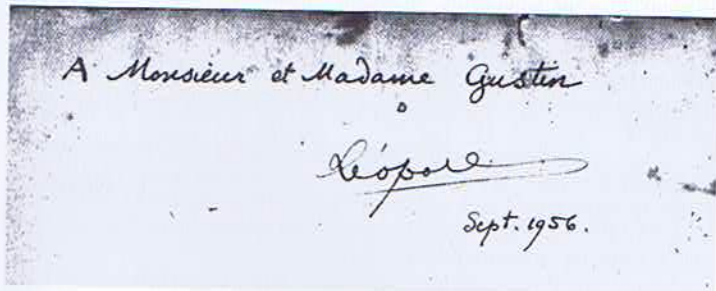 A Monsieur et Madame Gustin
Léopold
Sept. 1956.